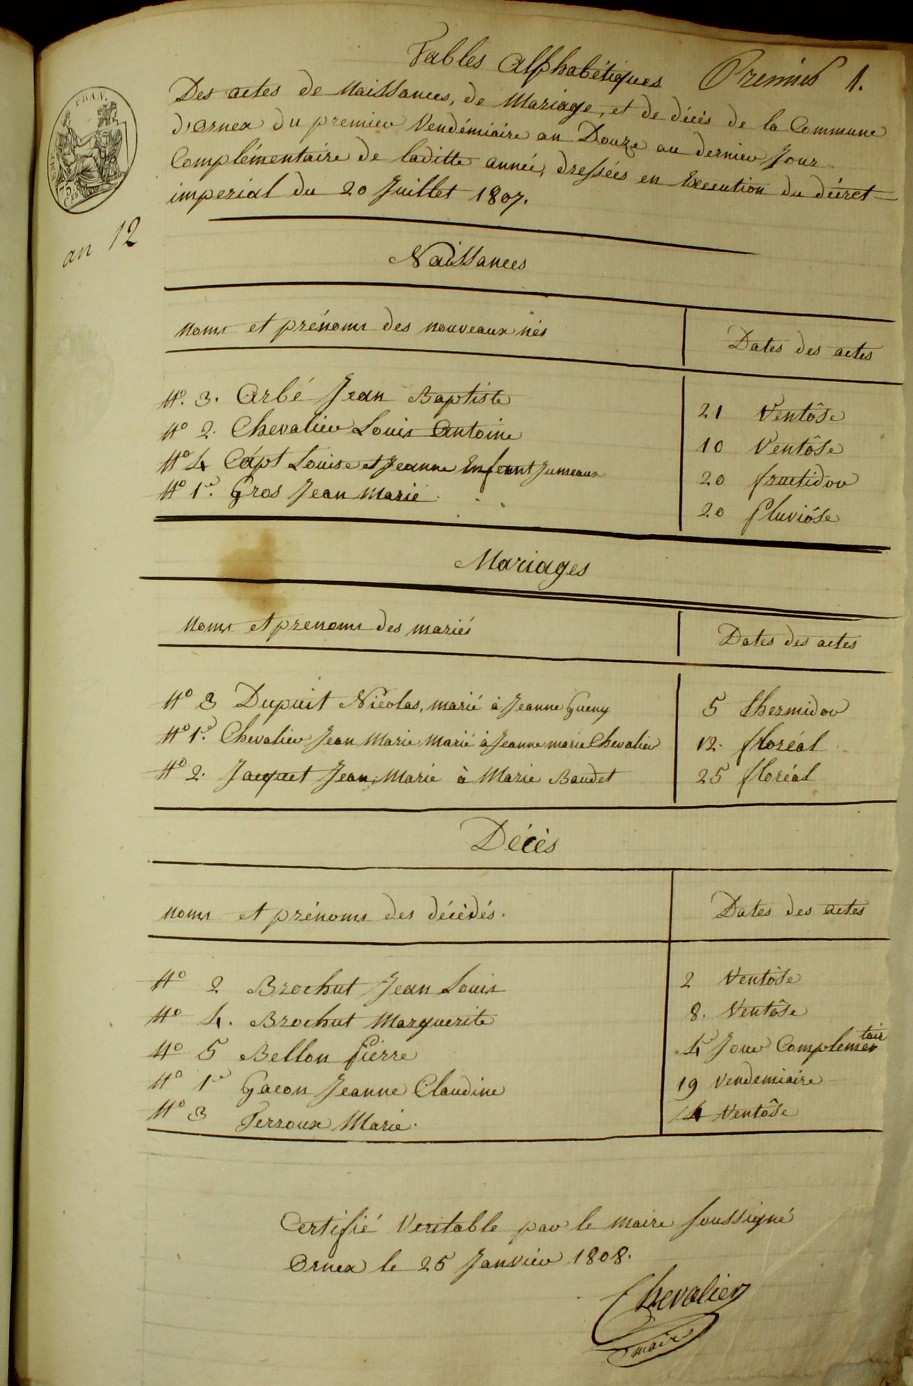 Tables Alphabétiques Premier 1.
Des actes de Naissances, de Mariage, et de décès de la Commune
d'ornex du premier Vendémiaire an Douze au dernier Jour
Complémentaire de laditte année, dressées en Execution du décret
imperial du 20 Juillet 1807.
an 12
Naissances
Noms et prénoms des nouveaux nés Dates des actes
No. 3. Arbé Jean Baptiste 21 Ventôse
No 2. Chevalier Louis Antoine 10 Ventôse
No 4 Capt Louise et Jeanne Enfant Jumeaux 20 fructidor
No 1er Gros Jean Marie 20 Pluviôse
Mariages
Noms et prenoms des mariés Dates des actes
No 3 Dupuit Nicolas, marié à Jeanne Gueny 5 thermidor
No 1er Chevalier Jean Marie Marié à Jeanne marie Chevalier 12. floréal
No 2. Jacquet Jean Marie à Marie Baudet 25 floréal
Décès
Noms et prénoms des décédés. Dates des actes
No 2 Brochut Jean Louis 2 Ventôse
No 4. Brochut Marguerite 8. Ventôse
No 5 Bellon Pierre 4 Jour Complementair
No 1er Gacon Jeanne Claudine 19 Vendemiaire
No 3 Perroux Marie. Ventôse
Certifié Veritable par le maire soussigné
Ornex le 25 Janvier 1808.
Chevalier
maire